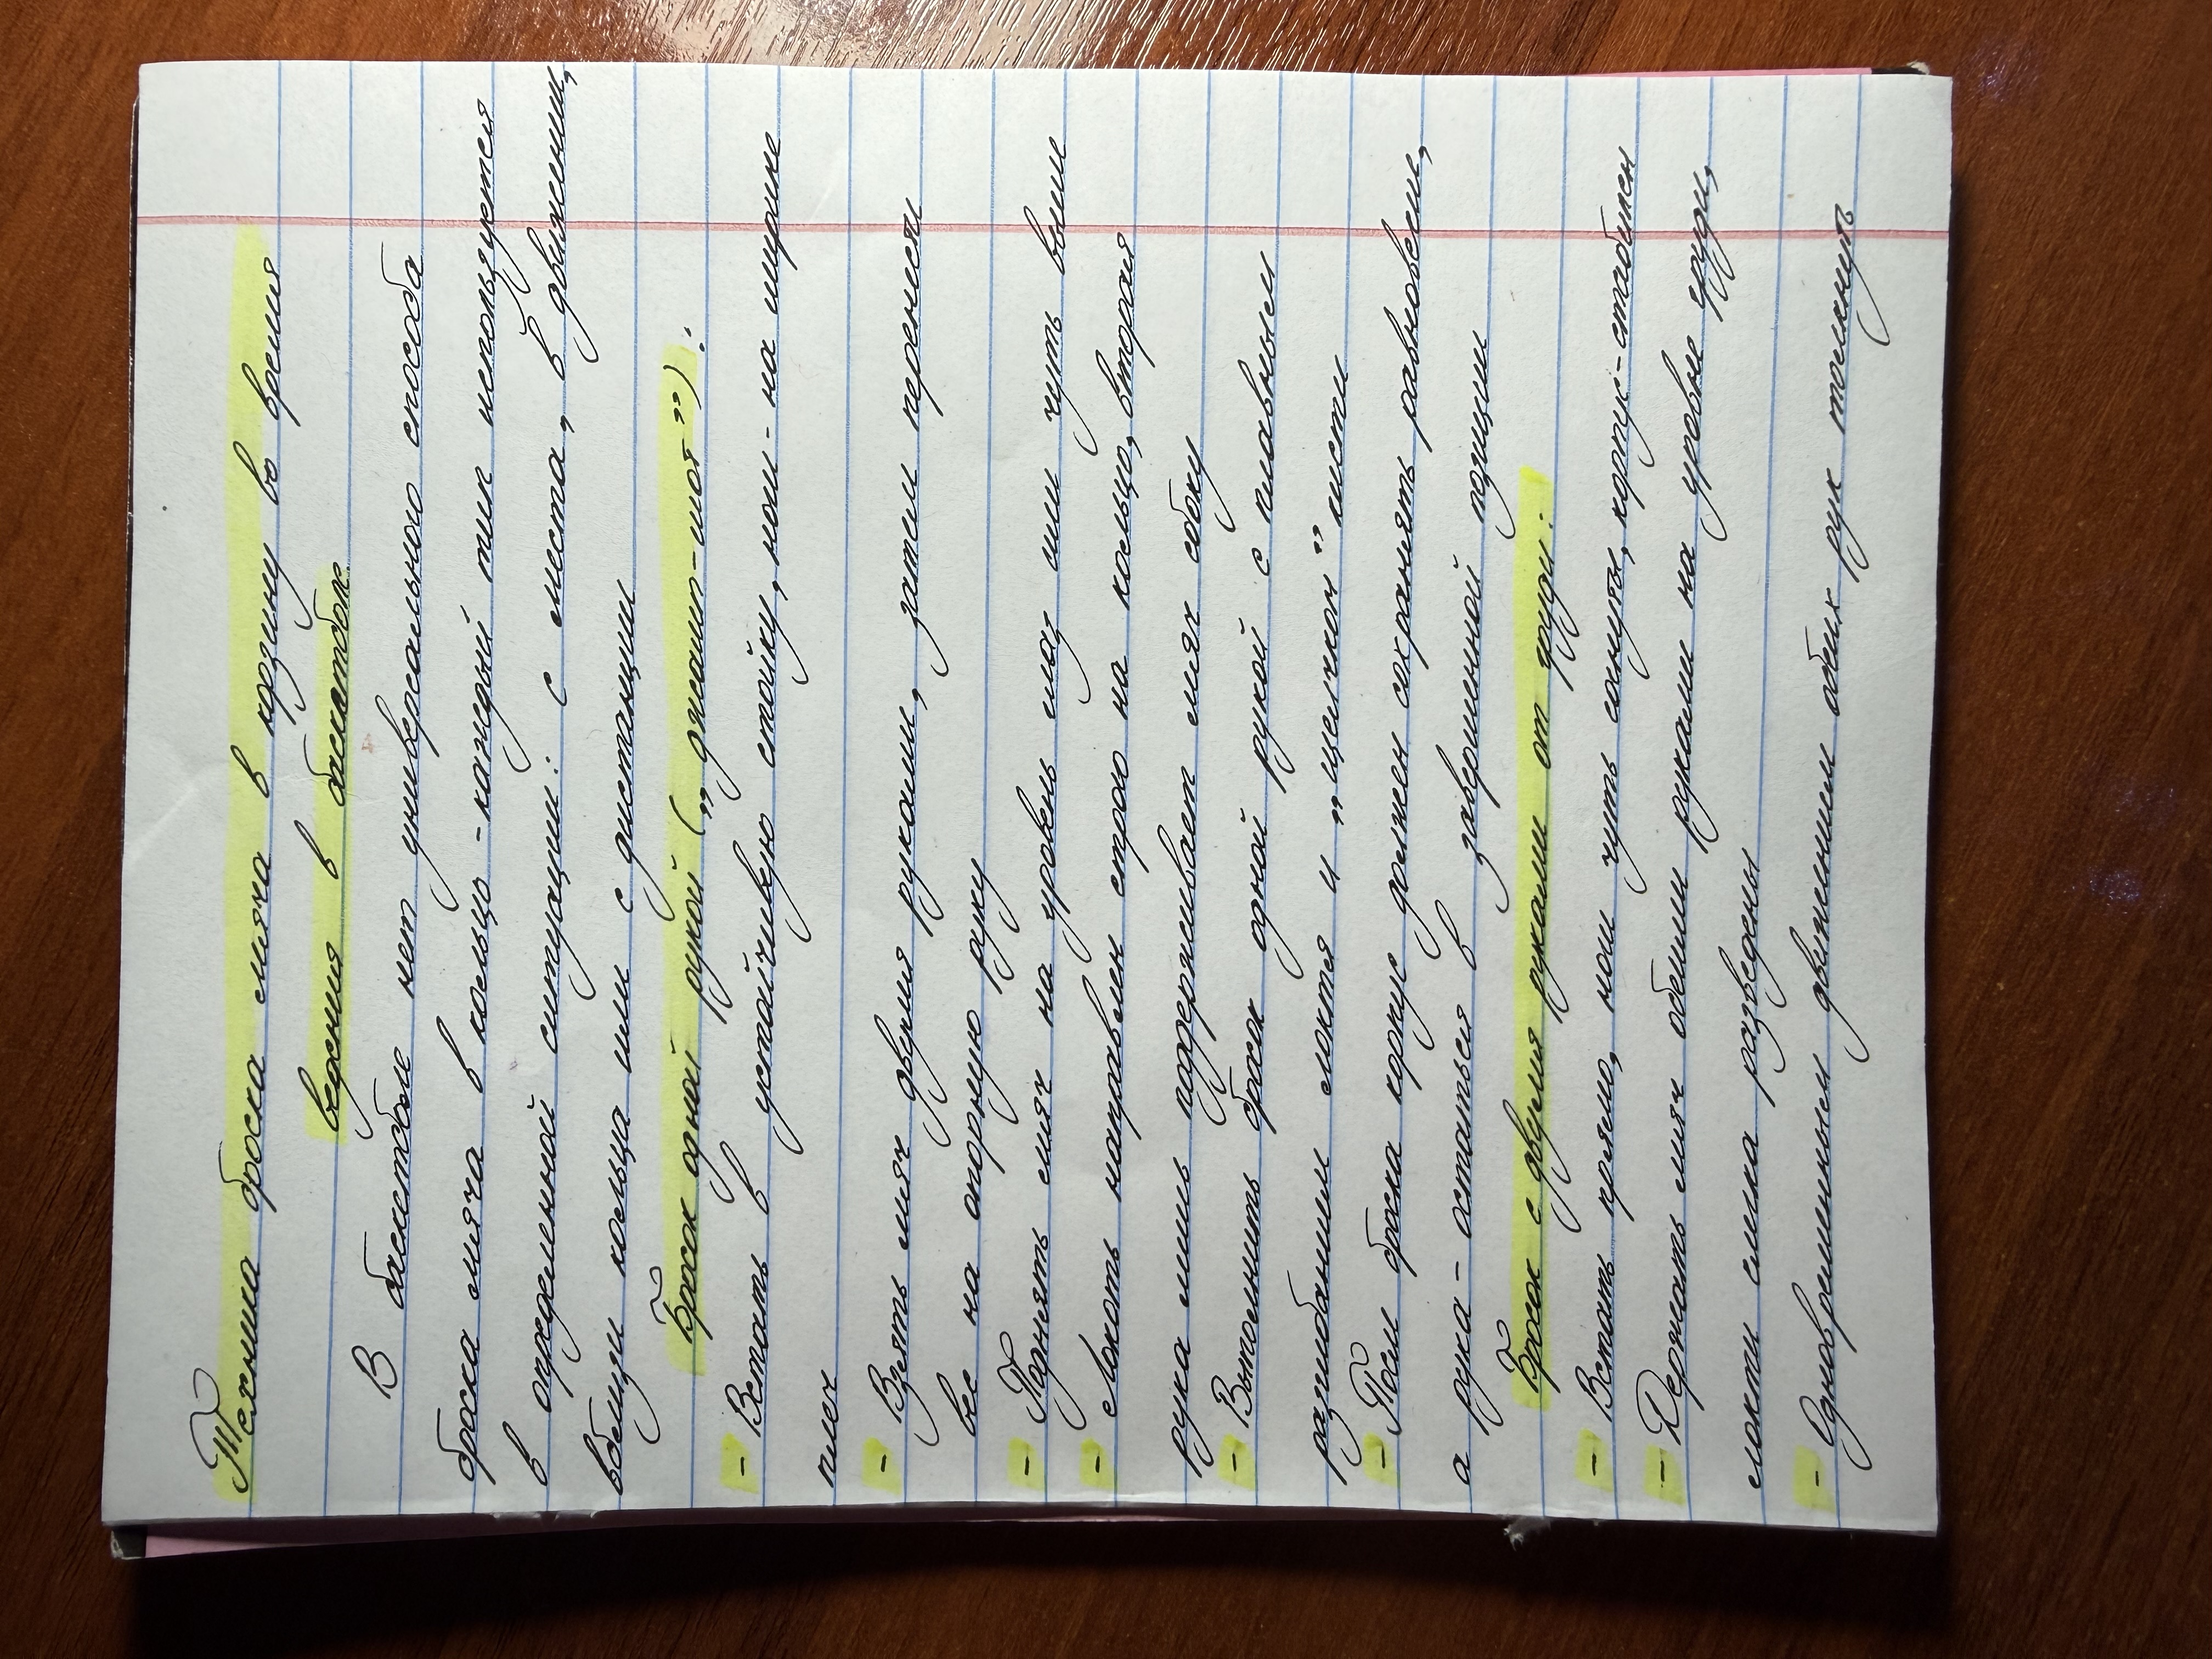 Техника броска мяча в корзину во время
ведения в баскетболе.
В баскетболе нет универсального способа
броска мяча в кольцо - каждый тип используется
в определенной ситуации: с места, в движении,
вблизи кольца или с дистанции
Бросок одной рукой („джамп-шот”):
- Встать в устойчивую стойку, ноги - на ширине
плеч
- Взять мяч двумя руками, затем перенести
вес на опорную руку
- Поднять мяч на уровень глаз или чуть выше
- Локоть направлен строго на кольцо, вторая
рука лишь поддерживает мяч сбоку
- Выполнить бросок одной рукой с плавным
разгибанием локтя и „щелчком” кисти
- После броска корпус должен сохранять равновесие,
а рука - остаться в завершенной позиции
Бросок с двумя руками от груди:
- Встать прямо, ноги чуть согнуты, корпус - стабилен
- Держать мяч обеими руками на уровне груди,
локти слегка разведены
- Одновременным движением обеих рук толкнуть